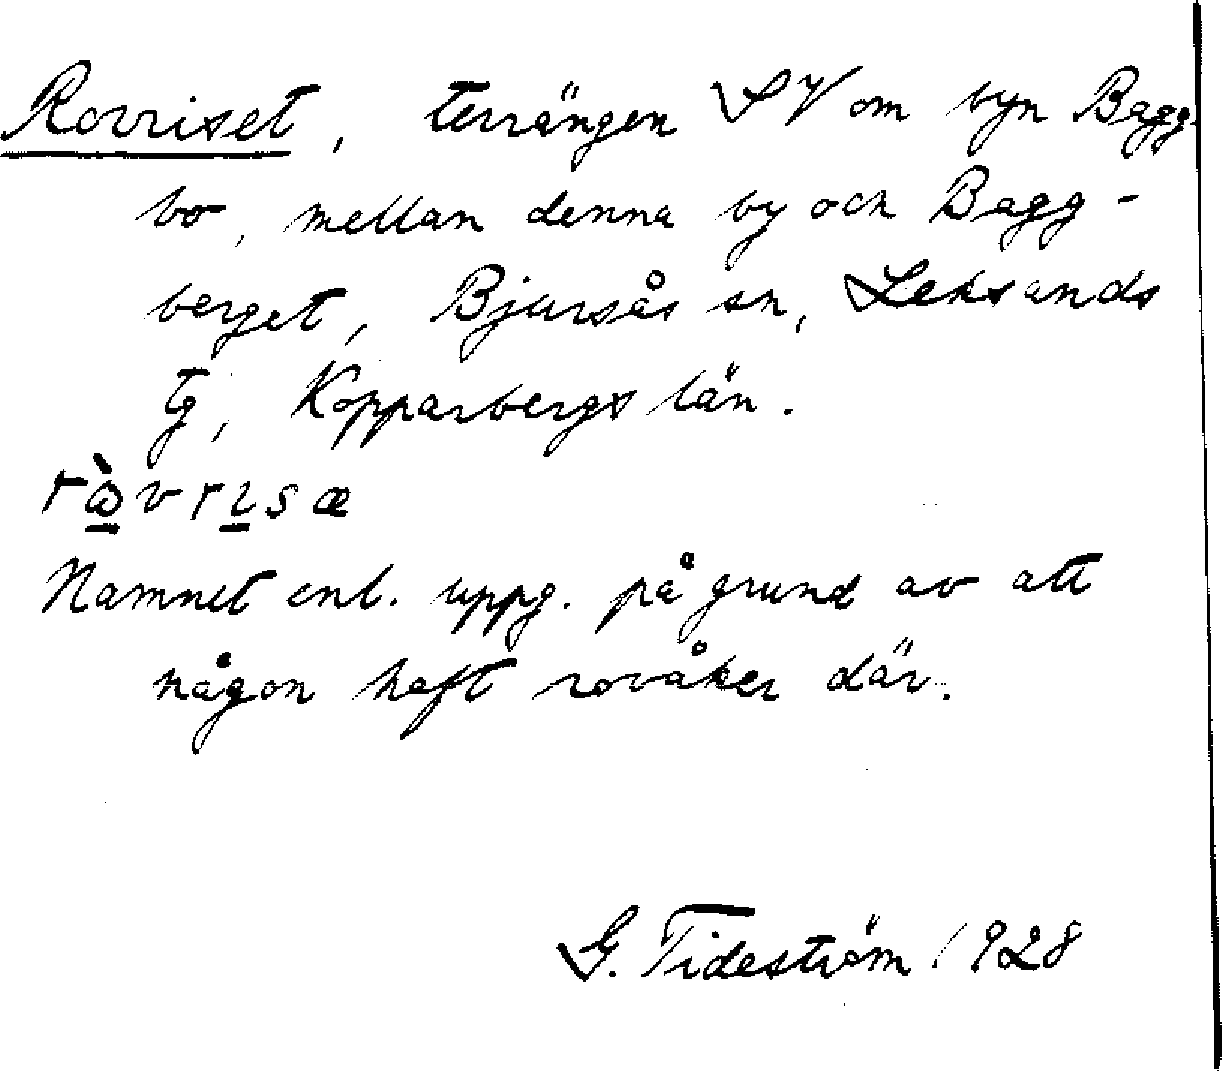 Rovriset, terrängen SV om byn Bagg-
bo, mellan denna by och Bagg-
berget, Bjursås sn, Leksands
tg, Kopparbergs län.
Namnet enl. uppg. på grund av att
någon haft rovåker där.
G. Tideström 1928